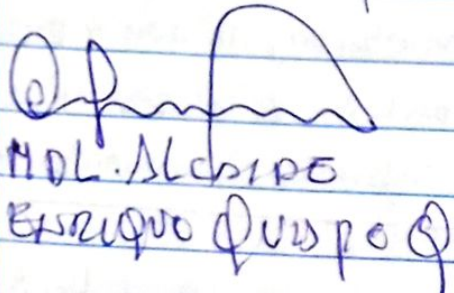 MDL. ALCALDE
ENRIQUE QUISPE Q